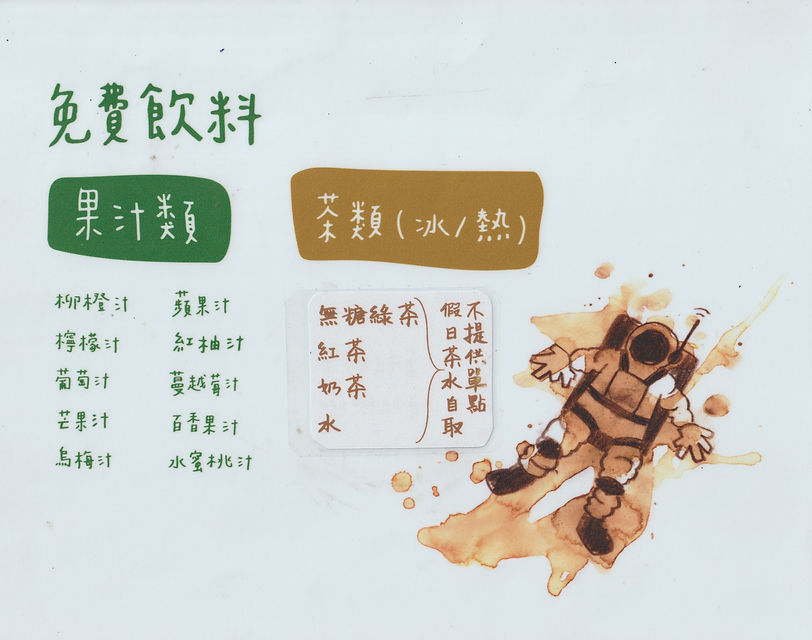 免費飲料
果汁類
柳橙汁
蘋果汁
檸檬汁
紅柚汁
葡萄汁
蔓越莓汁
芒果汁
百香果汁
烏梅汁
水蜜桃汁
茶類(冰/熱)
無糖綠茶
紅茶
奶茶
水
不提供單點
假日茶水自取